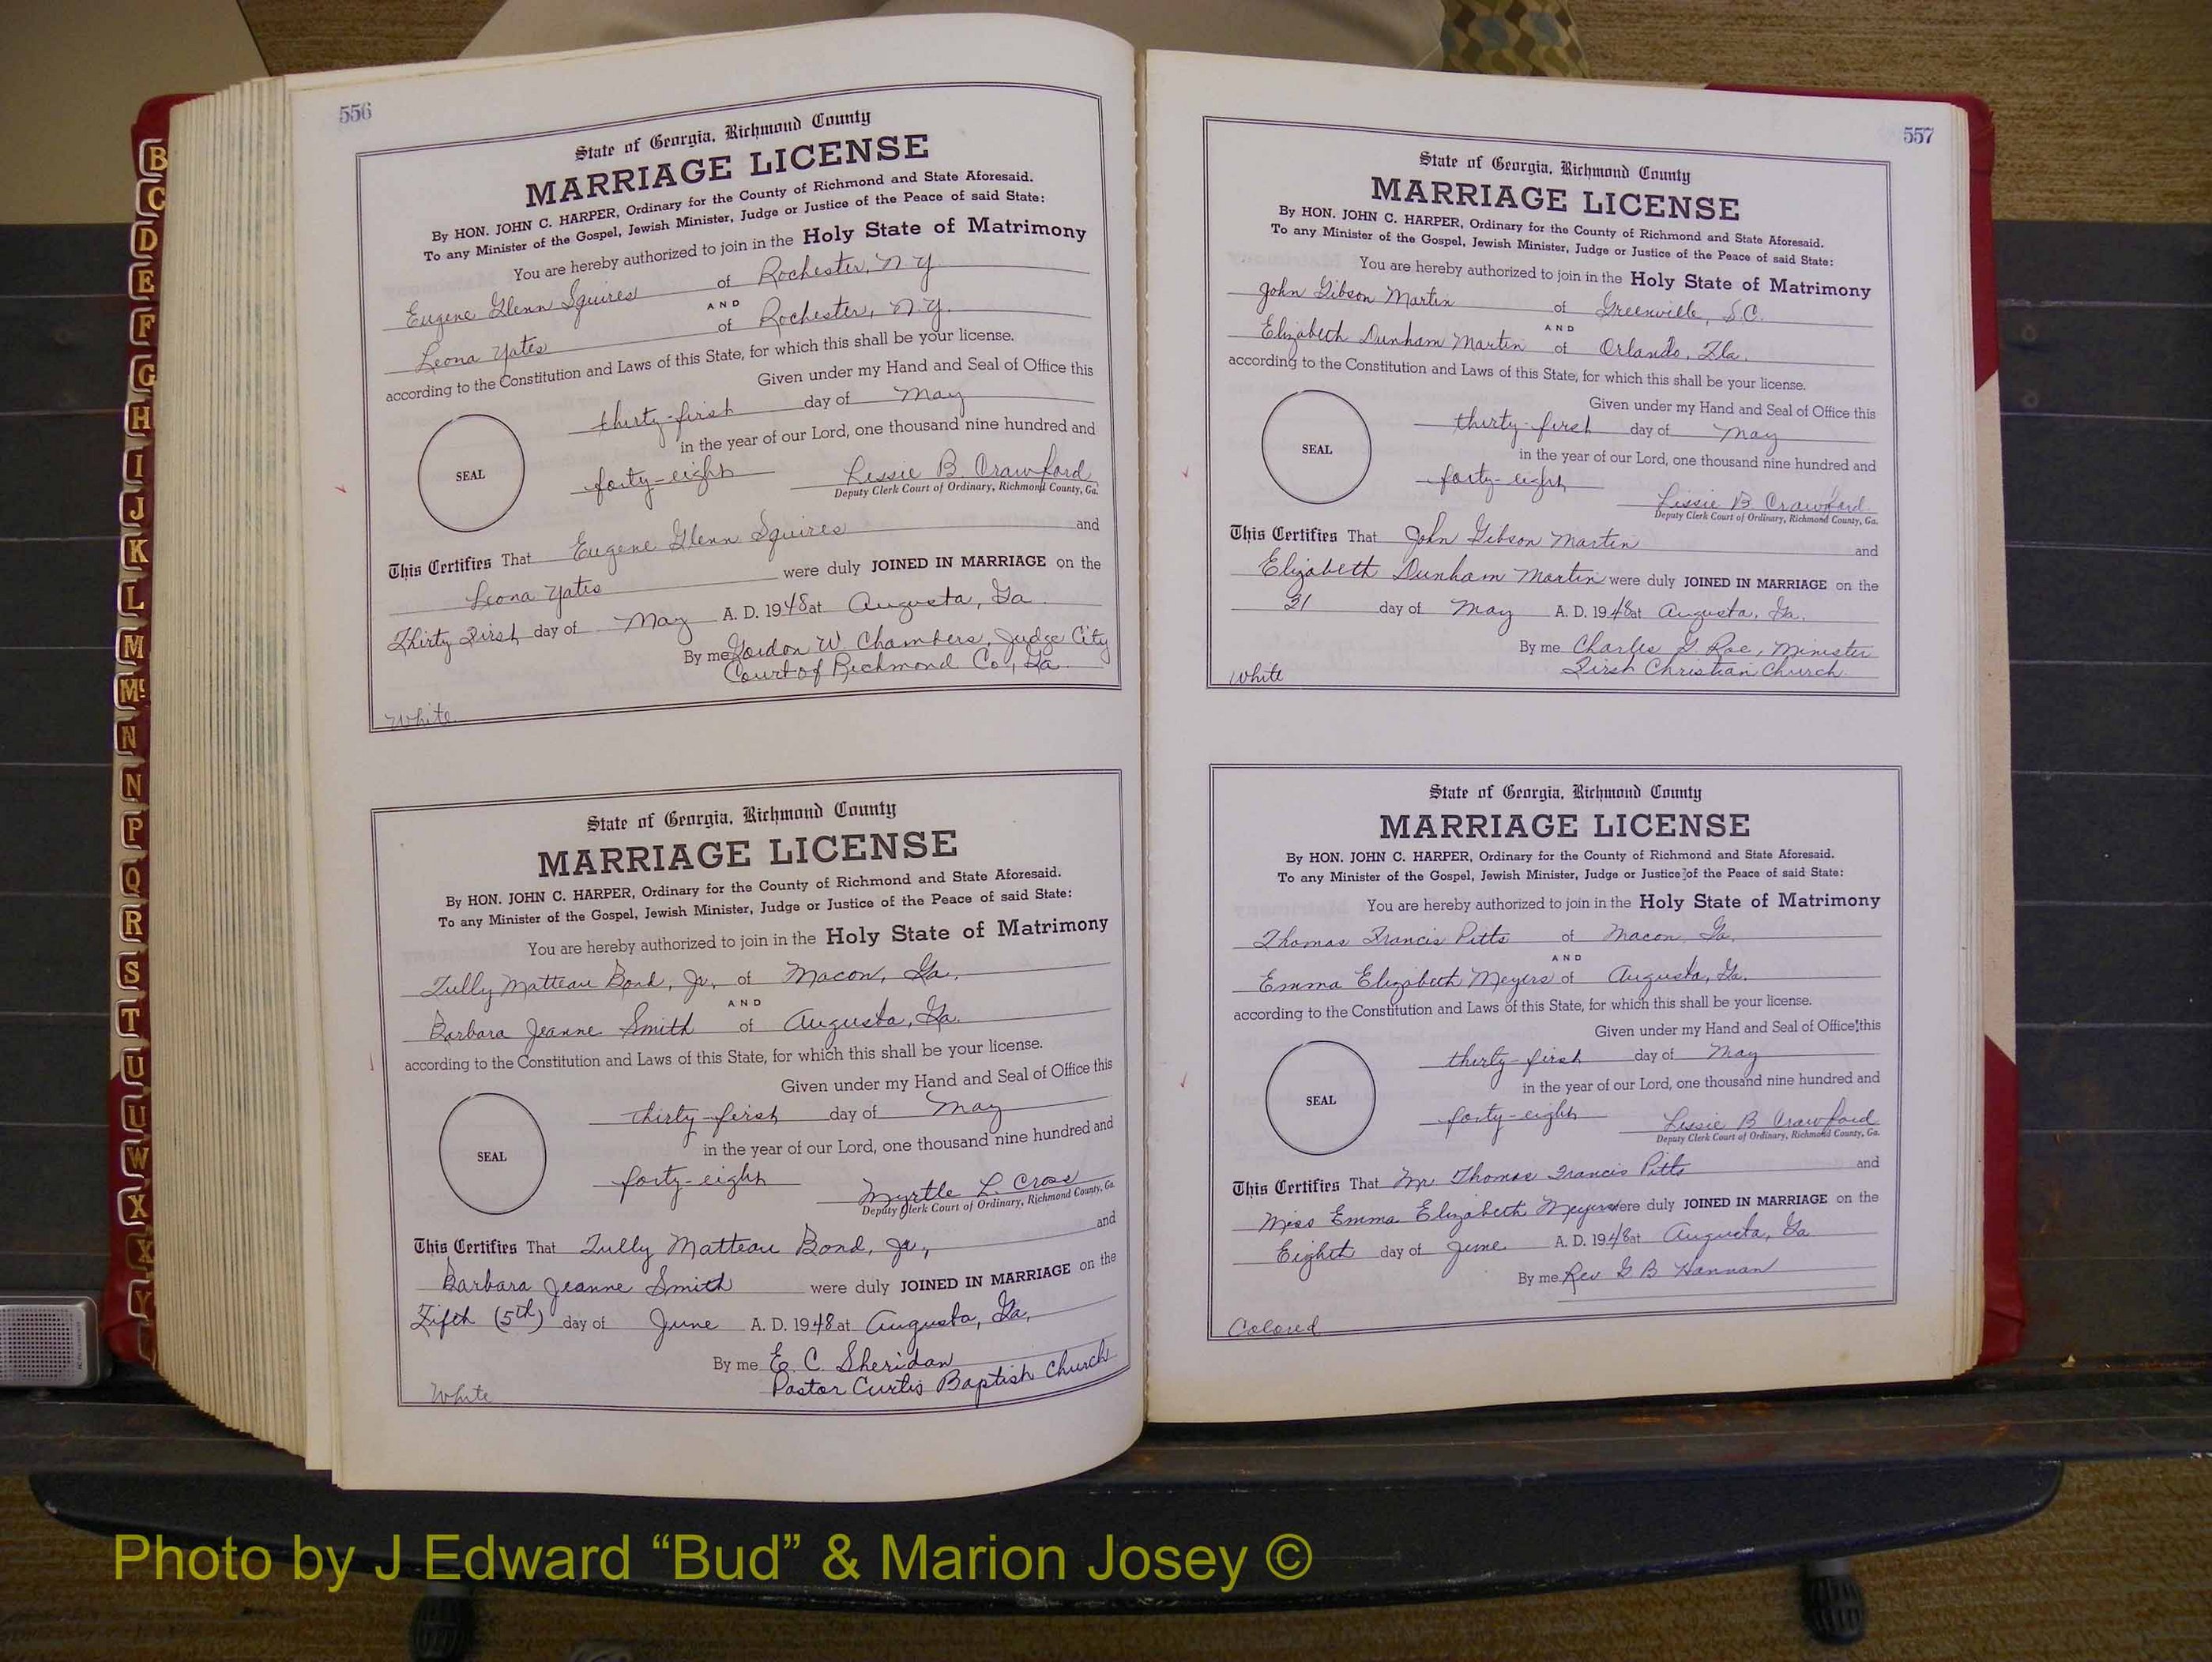 556
State of Georgia, Richmond County
MARRIAGE LICENSE
By HON. JOHN C. HARPER, Ordinary for the County of Richmond and State Aforesaid.
To any Minister of the Gospel, Jewish Minister, Judge or Justice of the Peace of said State:
You are hereby authorized to join in the Holy State of Matrimony
Eugene Glenn Squires of Rochester, N.Y.
AND
Leona Yates of Rochester, N.Y.
according to the Constitution and Laws of this State, for which this shall be your license.
Given under my Hand and Seal of Office this
thirty-first day of May
in the year of our Lord, one thousand nine hundred and
SEAL
forty-eight Lessie B. Crawford
Deputy Clerk Court of Ordinary, Richmond County, Ga.
This Certifies That Eugene Glenn Squires and
Leona Yates were duly JOINED IN MARRIAGE on the
Thirty First day of May A. D. 1948 at Augusta, Ga.
By me Gordon W. Chambers, Judge City
Court of Richmond Co., Ga.
White
State of Georgia, Richmond County
MARRIAGE LICENSE
By HON. JOHN C. HARPER, Ordinary for the County of Richmond and State Aforesaid.
To any Minister of the Gospel, Jewish Minister, Judge or Justice of the Peace of said State:
You are hereby authorized to join in the Holy State of Matrimony
Tully Matteau Bond, Jr., of Macon, Ga.
AND
Barbara Jeanne Smith of Augusta, Ga.
according to the Constitution and Laws of this State, for which this shall be your license.
Given under my Hand and Seal of Office this
thirty-first day of May
in the year of our Lord, one thousand nine hundred and
SEAL
forty-eight Myrtle L. Cross
Deputy Clerk Court of Ordinary, Richmond County, Ga.
This Certifies That Tully Matteau Bond, Jr., and
Barbara Jeanne Smith were duly JOINED IN MARRIAGE on the
Fifth (5th) day of June A. D. 1948 at Augusta, Ga.
By me E. C. Sheridan
Pastor Curtis Baptist Church
White
557
State of Georgia, Richmond County
MARRIAGE LICENSE
By HON. JOHN C. HARPER, Ordinary for the County of Richmond and State Aforesaid.
To any Minister of the Gospel, Jewish Minister, Judge or Justice of the Peace of said State:
You are hereby authorized to join in the Holy State of Matrimony
John Gibson Martin of Greenville, S.C.
AND
Elizabeth Dunham Martin of Orlando, Fla.
according to the Constitution and Laws of this State, for which this shall be your license.
Given under my Hand and Seal of Office this
thirty-first day of May
in the year of our Lord, one thousand nine hundred and
SEAL
forty-eight Lessie B. Crawford
Deputy Clerk Court of Ordinary, Richmond County, Ga.
This Certifies That John Gibson Martin and
Elizabeth Dunham Martin were duly JOINED IN MARRIAGE on the
31 day of May A. D. 1948 at Augusta, Ga.
By me Charles G. Roe, Minister
First Christian Church
White
State of Georgia, Richmond County
MARRIAGE LICENSE
By HON. JOHN C. HARPER, Ordinary for the County of Richmond and State Aforesaid.
To any Minister of the Gospel, Jewish Minister, Judge or Justice of the Peace of said State:
You are hereby authorized to join in the Holy State of Matrimony
Thomas Francis Pitts of Macon, Ga.
AND
Emma Elizabeth Meyers of Augusta, Ga.
according to the Constitution and Laws of this State, for which this shall be your license.
Given under my Hand and Seal of Office this
thirty-first day of May
in the year of our Lord, one thousand nine hundred and
SEAL
forty-eight Lessie B. Crawford
Deputy Clerk Court of Ordinary, Richmond County, Ga.
This Certifies That Mr. Thomas Francis Pitts and
Miss Emma Elizabeth Meyers were duly JOINED IN MARRIAGE on the
Eighth day of June A. D. 1948 at Augusta, Ga
By me Rev G B Hannan
Colored
B
C
D
E
F
G
H
I
J
K
L
M
Mc
N
N
P
Q
R
S
T
U
U
W
X
X
Y
Photo by J Edward “Bud” & Marion Josey ©